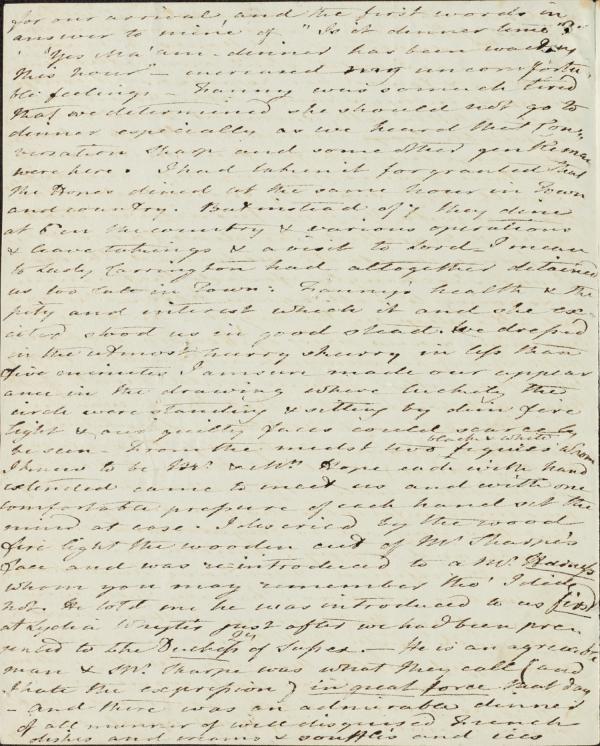 for our arrival, and the first words in
answer to mine of "Is it dinner time"?
"Yes Ma'am dinner has been waiting
this hour" – increased my uncomforta-
ble feelings – Fanny was so much tired
that we determined she should not go to
dinner especially as we heard that Con-
versation Sharp and some other gentleman
were here. I had taken it for granted that
the Hopes dined at the same hour in Town
and country. But instead of 7 they dine
at 6 in the country & various operations
& leave takings & a visit to Lord – I mean
to Lady Carrington had altogether detained
us too late in Town: Fanny's health & the
pity and interest which it and she ex-
cited stood us in good stead. We dressed
in the utmost hurry skurry in less than
five minutes I am sure made our appear
ance in the drawing where luckily the
circle were standing & sitting by dim fire
light & our guilty faces could scarcely
be seen – From the midst two black & white figures whom
I knew to be Mr. & Mrs. Hope each with hand
extended came to meet us and with one
comfortable pressure of each hand set the
mind at ease. I descried by the wood
fire light the wooden cut of Mr. Sharpe's
face and was re-introduced to a Mr.
whom you may remember tho' I did
not He told me he was introduced to us first
at Lydia White's just after we had been pre
sented to the Duchess of Sussex. – He is an agreeable
man & Mr. Sharpe was what they call (and
I hate the expression) in great force that day
– and there was an admirable dinner
of all manner of well disguised French
dishes and creams & soufflés and ices